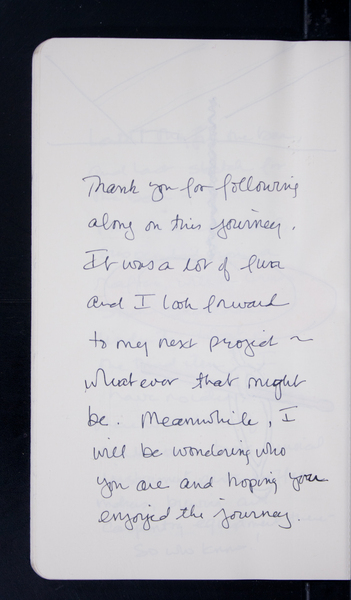 Thank you for following
along on this journey.
It was a lot of fun
and I look forward
to my next project ~
whatever that might
be. Meanwhile, I
will be wondering who
you are and hoping you
enjoyed the journey.